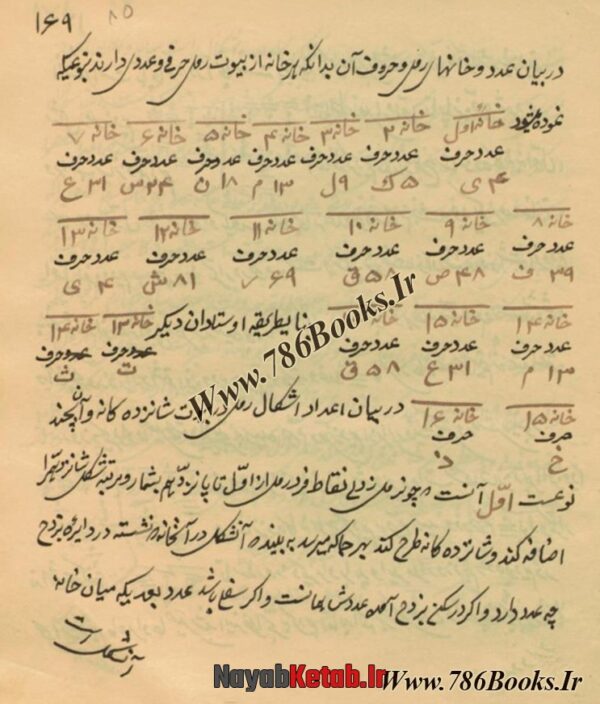 ۱۶۹ ۸۵
در بیان عدد و خانهای رمل و حروف آن بدانکه هر خانه از بیوت رمل حرفی و عددی دارند بنوعیکه
نموده میشود خانه اول خانه ۲ خانه ۳ خانه ۴ خانه ۵ خانه ۶ خانه ۷
عدد حرف عدد حرف عدد حرف عدد حرف عدد حرف عدد حرف عدد حرف
۴ ی ۵ ک ۹ ل ۱۳ م ۱۸ ن ۲۴ س ۳۱ ع
خانه ۸ خانه ۹ خانه ۱۰ خانه ۱۱ خانه ۱۲ خانه ۱۳
عدد حرف عدد حرف عدد حرف عدد حرف عدد حرف عدد حرف
۳۹ ف ۴۸ ص ۵۸ ق ۶۹ ر ۸۱ ش ۴ ی
خانه ۱۴ خانه ۱۵ بطریقه اوستادان دیگر خانه ۱۳ خانه ۱۴
عدد حرف عدد حرف عدد حرف عدد حرف عدد حرف
۱۳ م ۳۱ ع ۵۸ ق ت ث
خانه ۱۵ خانه ۱۶ در بیان اعداد اشکال رمل شانزده کانه و آن بچند
حرف حرف
خ ذ
نوعست اول آنست چون رمل نقاط فرد رمل از اول تا پانزدهم بشمار و مرتبه شکل شانزدهم را
اضافه کند و شانزده کانه طرح کند بهر جا که میرسد به بیند آنشکل در آنخانه نشسته در دایره بزدح
چه عدد دارد و اگر در سکن بزدح آمده عددش همانست و اگر باشد عدد بعد یکه میان خانه
آنشکل
Www.786Books.Ir
NayabKetab.Ir
Www.786Books.Ir